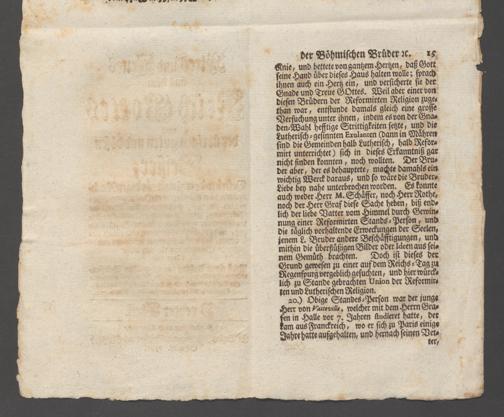 der Böhmischen Brüder ꝛc. 15
Knie, und bettete von gantzem Hertzen, daß Gott
seine Hand über dieses Haus halten wolle; sprach
ihnen auch ein Hertz ein, und versicherte sie der
Gnade und Treue GOttes. Weil aber einer von
diesen Brüdern der Reformirten Religion zuge-
than war, entstunde damals gleich eine grosse
Versuchung unter ihnen, indem es von der Gna-
den-Wahl hefftige Strittigkeiten setzte, und die
Lutherisch-gesinnten Exulanten (dann in Mähren
sind die Gemeinden halb Lutherisch, halb Refor-
mirt unterrichtet) sich in dieses Erkanntniß gar
nicht finden konnten, noch wollten. Der Bru-
der aber, der es behauptete, machte damahls ein
wichtig Werck daraus, und so wäre die Bruder-
Liebe bey nahe unterbrochen worden. Es konnte
auch weder Herr M. Schäffer, noch Herr Rothe,
noch der Herr Graf diese Sache heben, biß end-
lich der liebe Vatter vom Himmel durch Gewin-
nung einer Reformirten Stands-Person, und
die täglich vorhaltende Erweckungen der Seelen,
jenem L. Bruder andere Beschäfftigungen, und
mithin die überflüßigen Bilder oder Ideen aus sei-
nem Gemüth brachten. Doch ist dieses der
Grund gewesen zu einer auf dem Reichs-Tag zu
Regenspurg vergeblich gesuchten, und hier würck-
lich zu Stande gebrachten Union der Reformir-
ten und Lutherischen Religion.
20.) Obige Standes-Person war der junge
Herr von welcher mit dem Herrn Gra-
fen in Halle vor 7. Jahren studieret hatte, der
kam aus Franckreich, wo er sich zu Paris einige
Jahre hatte aufgehalten, und hernach seinen Vet-
ter,